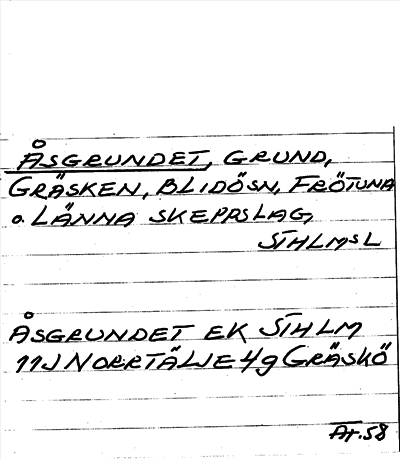 ÅSGRUNDET, GRUND,
GRÄSKEN, BLIDÖSN, FRÖTUNA
o. LÄNNA SKEPPSLAG,
STHLMS L
ÅSGRUNDET EK STHLM
11J NORRTÄLJE 4g GRÄSKÖ
AT.58